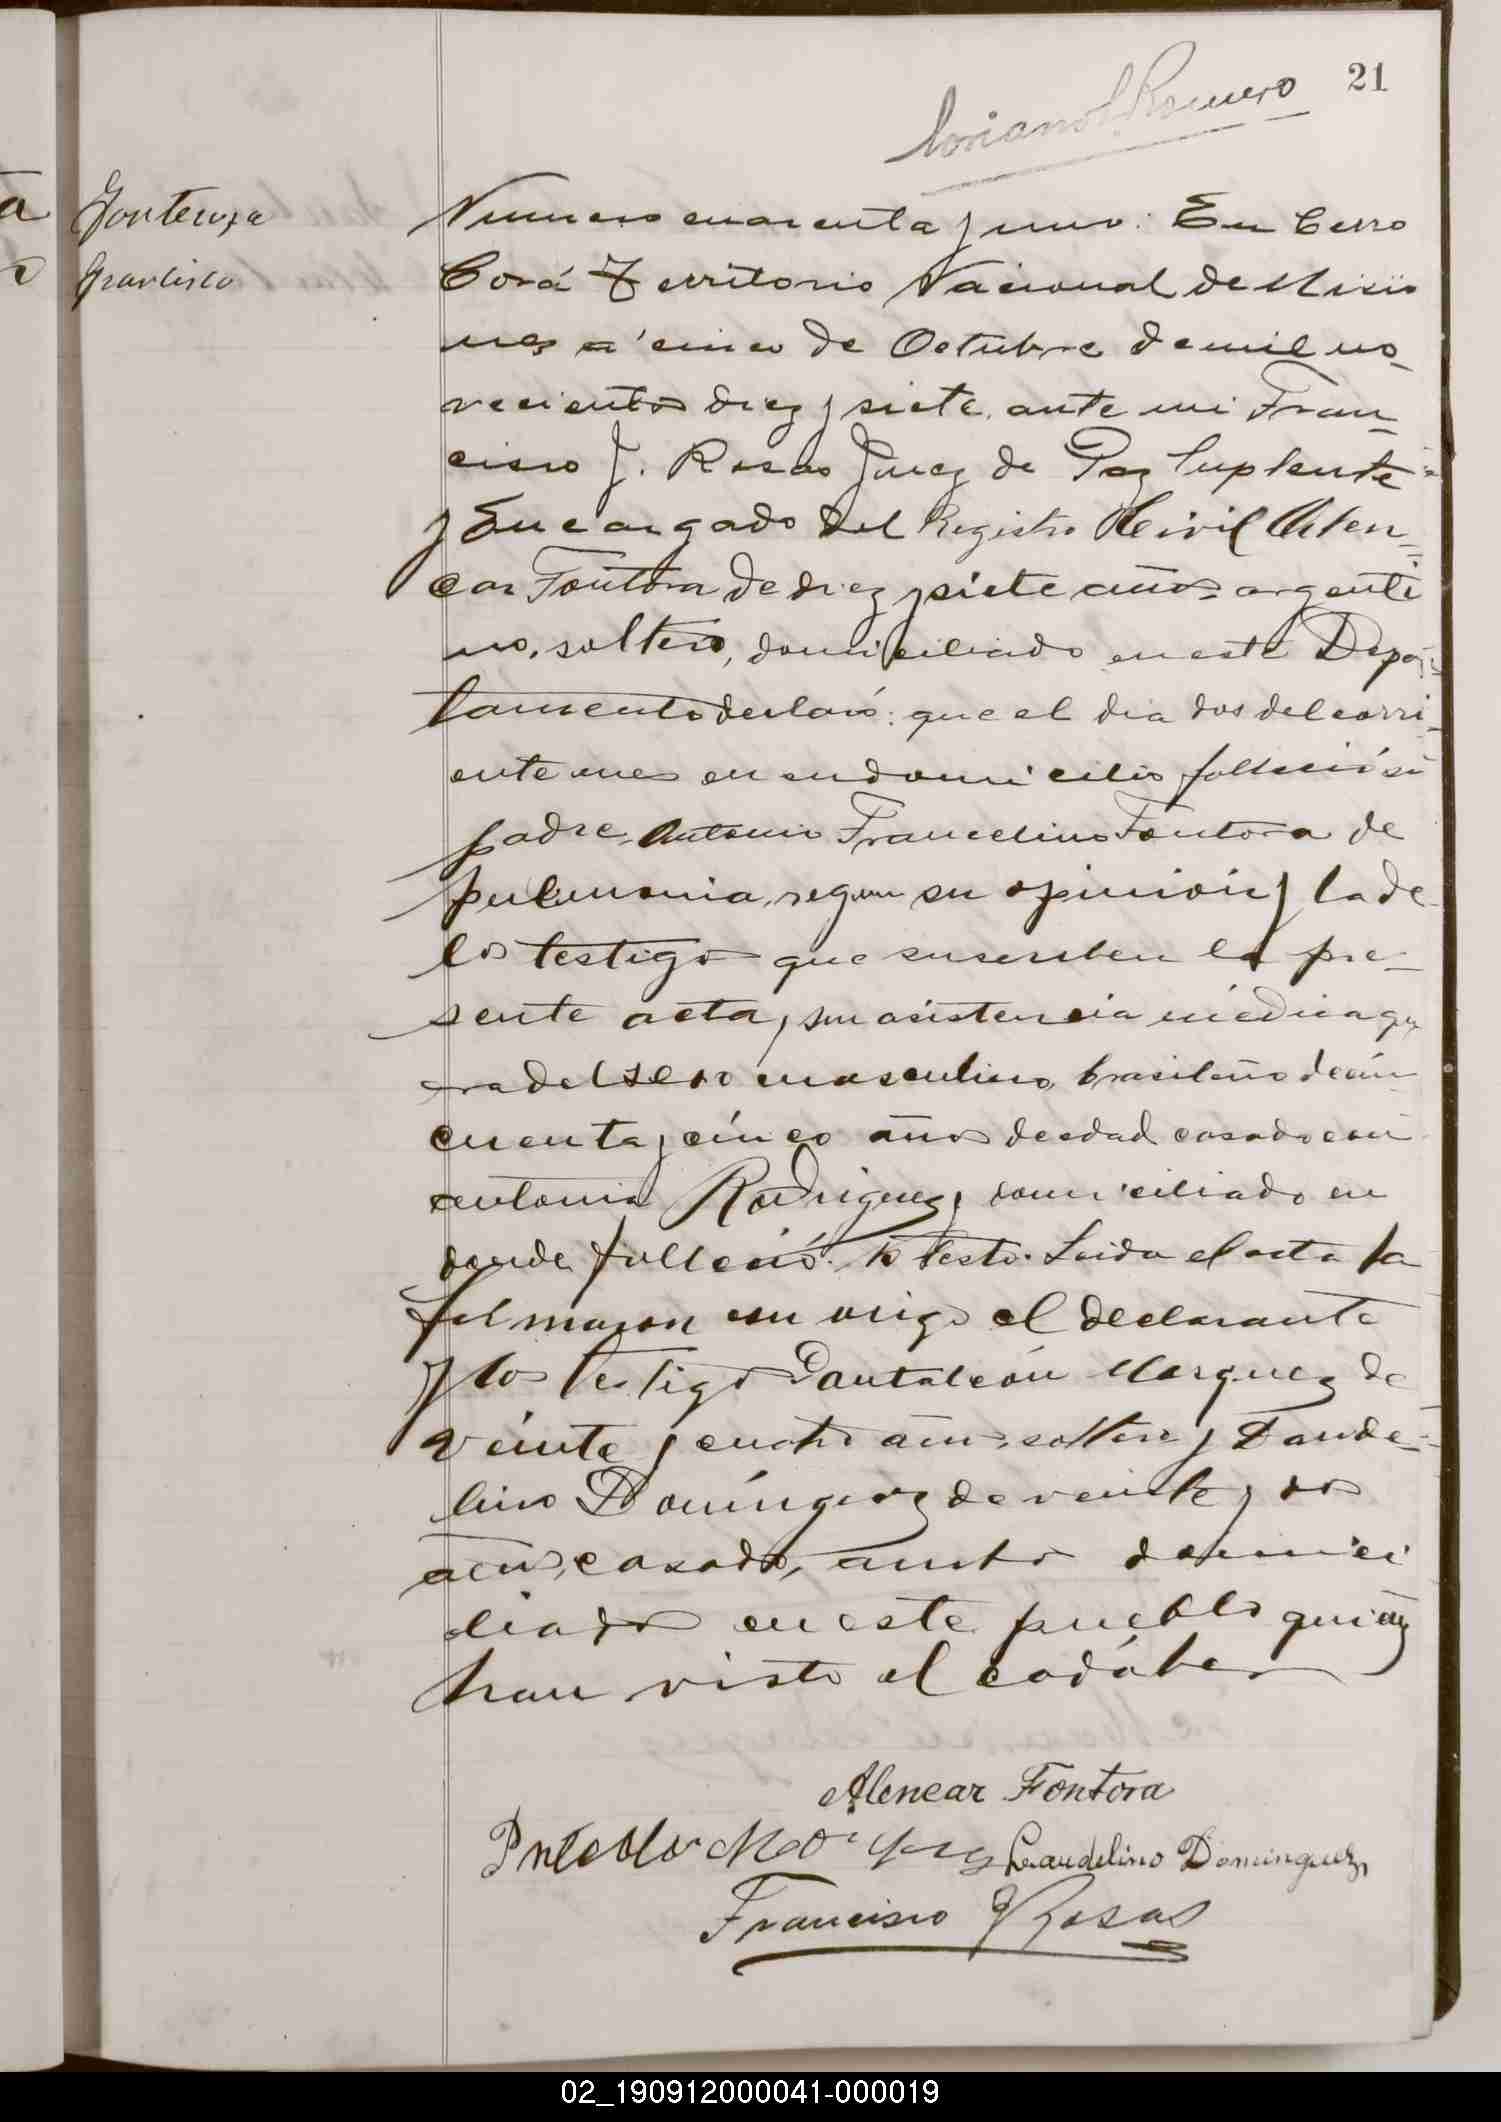 21
Soriano L. Romero
Numero cuarenta y uno: En Cerro
Corá Territorio Nacional de Misio
nes a cinco de Octubre de mil no-
vecientos diez y siete, ante mi Fran-
cisco J. Rosas Juez de Paz Suplente
y Encargado del Registro Civil Alen-
car Fontora de diez y siete años argenti
no, soltero, domiciliado en este Depar-
tamento declaró: que el dia dos del corri-
ente mes en su domicilio falleció su
padre, Antonio Francelino Fontora de
pulmonia, segun su opinión y la de
los testigos que suscriben la pre-
sente acta, sin asistencia médica que
era del sexo masculino, brasileño de cin
cuenta y cinco años de edad casado con
Antonia Rodriguez, domiciliado en
donde falleció. No testó. Leida el acta la
firmaron con migo el declarante
y los testigos Pantaleón Marquez de
veinte y cuatro años, soltero y Laude-
lino Domínguez de veinte y dos
años, casado, ambos domici
liados en este pueblo quienes
han visto el cadáber
Alencar Fontora
Laudelino Dominguez
Francisco J Rosas
02_190912000041-000019